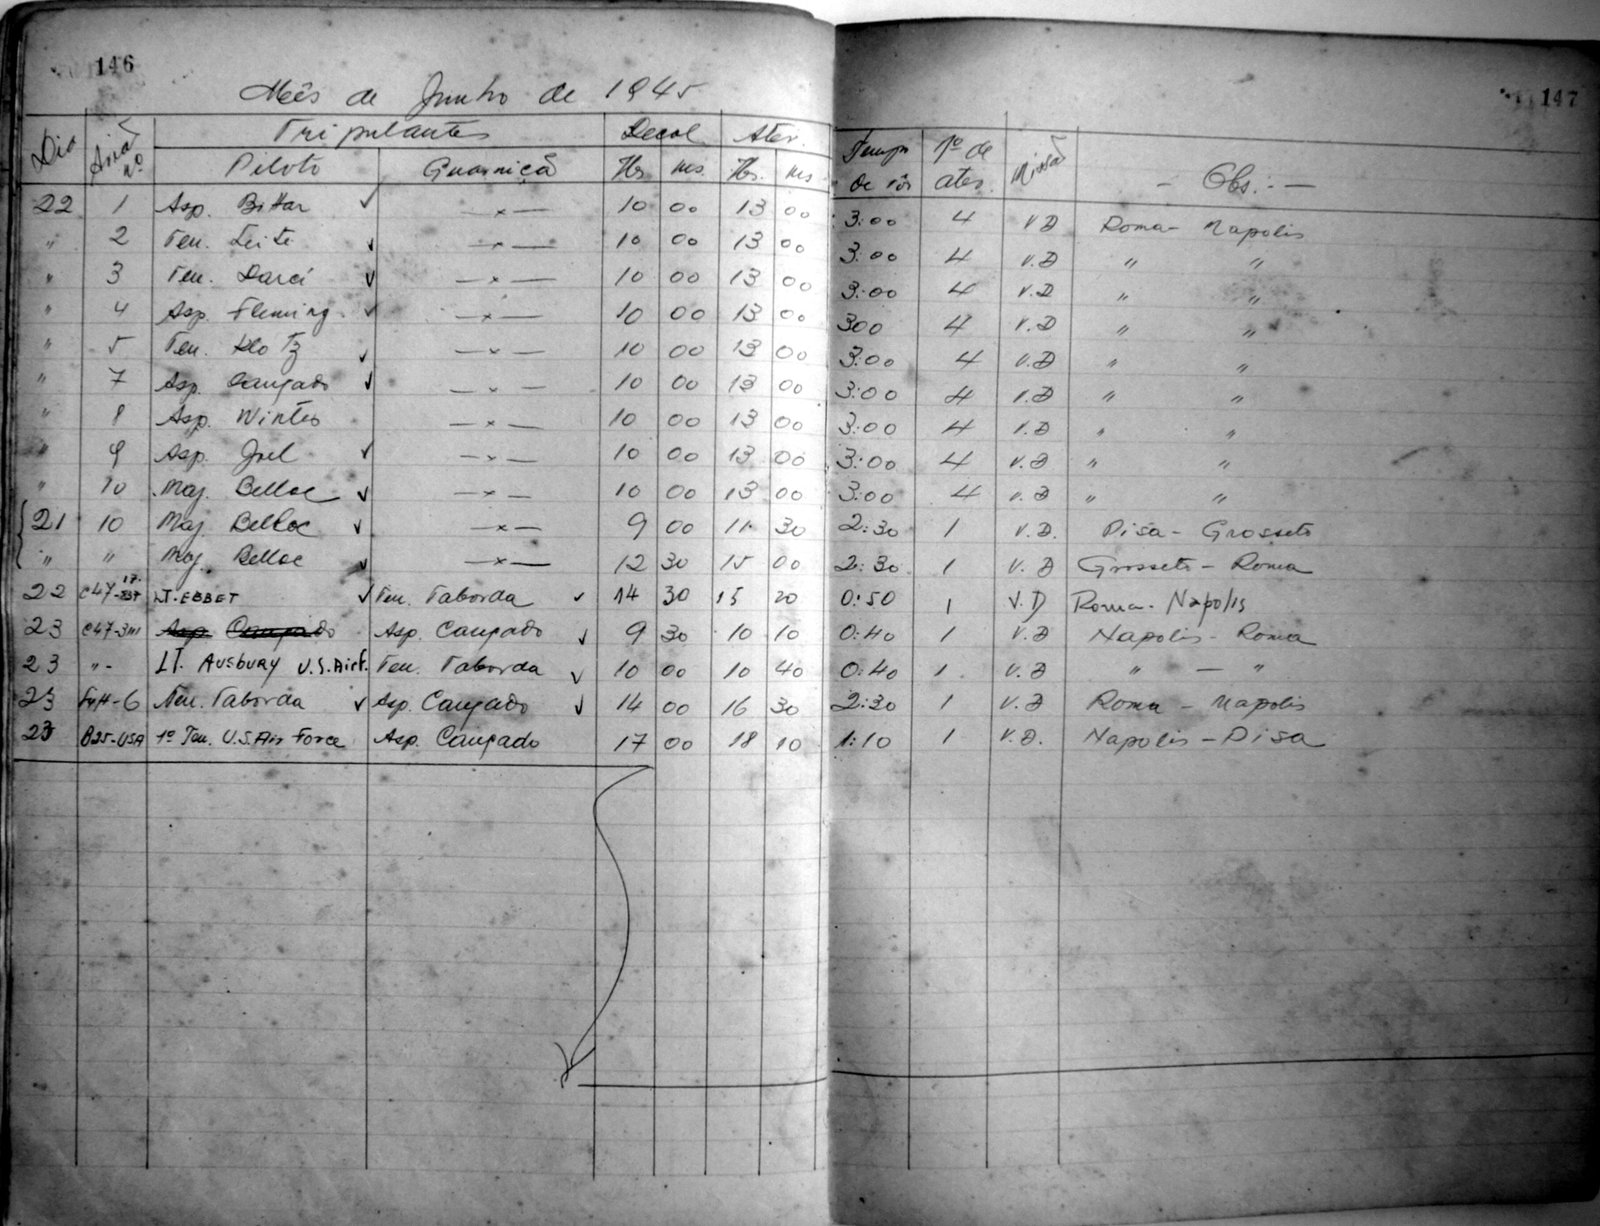 146
147
Mês de Junho de 1945
Dia Avião nº Tripulantes Decol Ater. Tempo de vôo nº de ater. Missão - Obs: -
Piloto Guarnição Hs. ms. Hs. ms
22 1 Asp. Bitar ✓ —x— 10 00 13 00 3:00 4 V.D Roma - Napolis
" 2 Ten. Leite ✓ —x— 10 00 13 00 3:00 4 V.D " "
" 3 Ten. Darci ✓ —x— 10 00 13 00 3:00 4 V.D " "
" 4 Asp. Fleming ✓ —x— 10 00 13 00 300 4 V.D " "
" 5 Ten. Klotz ✓ —x— 10 00 13 00 3:00 4 V.D " "
" 7 Asp. Cançado ✓ —x— 10 00 13 00 3:00 4 V.D " "
" 8 Asp. Winter —x— 10 00 13 00 3:00 4 V.D " "
" 9 Asp. Joel ✓ —x— 10 00 13 00 3:00 4 V.D " "
" 10 Maj. Belloc ✓ —x— 10 00 13 00 3:00 4 V.D " "
21 10 Maj. Belloc ✓ —x— 9 00 11 30 2:30 1 V.D. Pisa - Grosseto
" " Maj. Belloc ✓ —x— 12 30 15 00 2:30 1 V.D Grosseto - Roma
22 C47- LT. EBBET ✓ Ten. Taborda ✓ 14 30 15 20 0:50 1 V.D Roma - Napolis
23 C47- Asp. Cançado Asp. Cançado ✓ 9 30 10 10 0:40 1 V.D Napolis - Roma
23 "- LT. AUSBURY U.S. AirF. Ten. Taborda ✓ 10 00 10 40 0:40 1 V.D " — "
23 -6 Ten. Taborda ✓ Asp. Cançado ✓ 14 00 16 30 2:30 1 V.D Roma - Napolis
23 B25-USA 1º Ten. U.S. Air Force Asp. Cançado 17 00 18 10 1:10 1 V.D. Napolis - Pisa